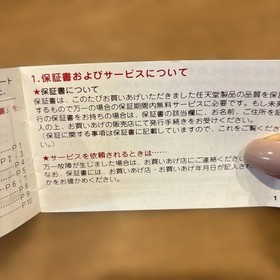 1.保証書およびサービスについて
★保証書について
保証書は、このたびお買いあげいただきました任天堂製品の品質を保
するもので万一の場合の保証期間内無料サービスに必要です。もし未
行の保証書をお持ちの場合は、保証書の該当欄に、お名前、ご住所を記
入の上、お買いあげの販売店にて発行手続きをお受けください。
(保証に関する事項は保証書に記載していますので、これをご覧くださ
い。)
★サービスを依頼されるときは……
万一故障が生じました場合は、お買いあげ店にご連絡ください
なお、保証書には、お買いあげ店・お買いあげ年月日が記入され
かをお確かめください。
1
ート
」を
P1
P3
P4
P6
P8
P9
P10